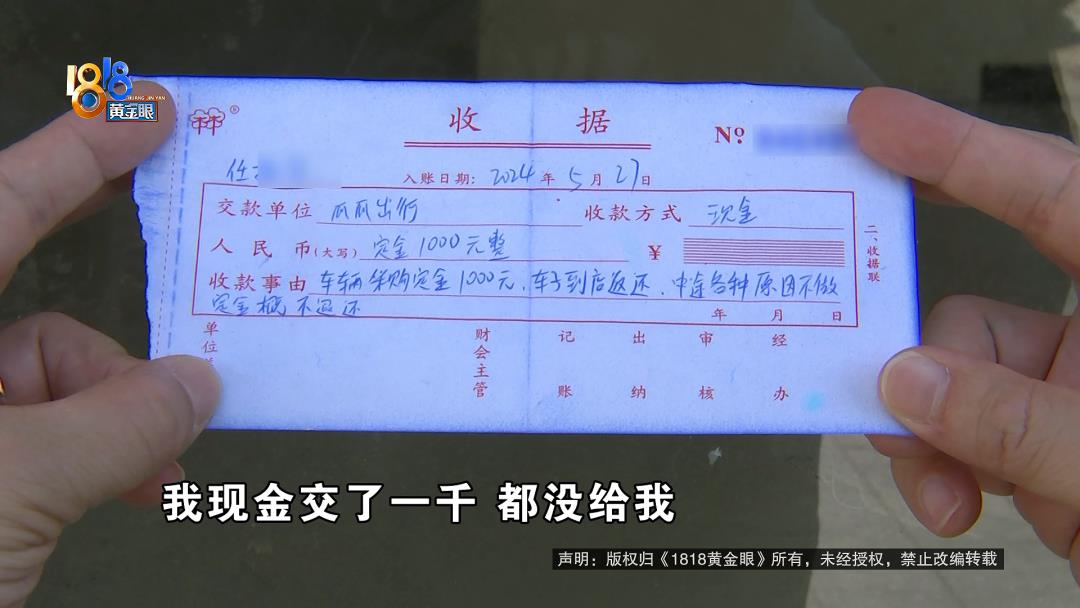 1818
HUANG JIN YAN
黄金眼
收 据
No:
任
入账日期: 2024 年 5 月 27 日
交款单位 爪爪出行 收款方式 现金
人民币(大写) 定金1000元整 ¥
收款事由 车辆采购定金1000元,车子到店返还,中途各种原因不做
定金概不退还 年 月 日
单位 财会主管 记账 出纳 审核 经办
二、收据联
我现金交了一千 都没给我
声明:版权归《1818黄金眼》所有,未经授权,禁止改编转载